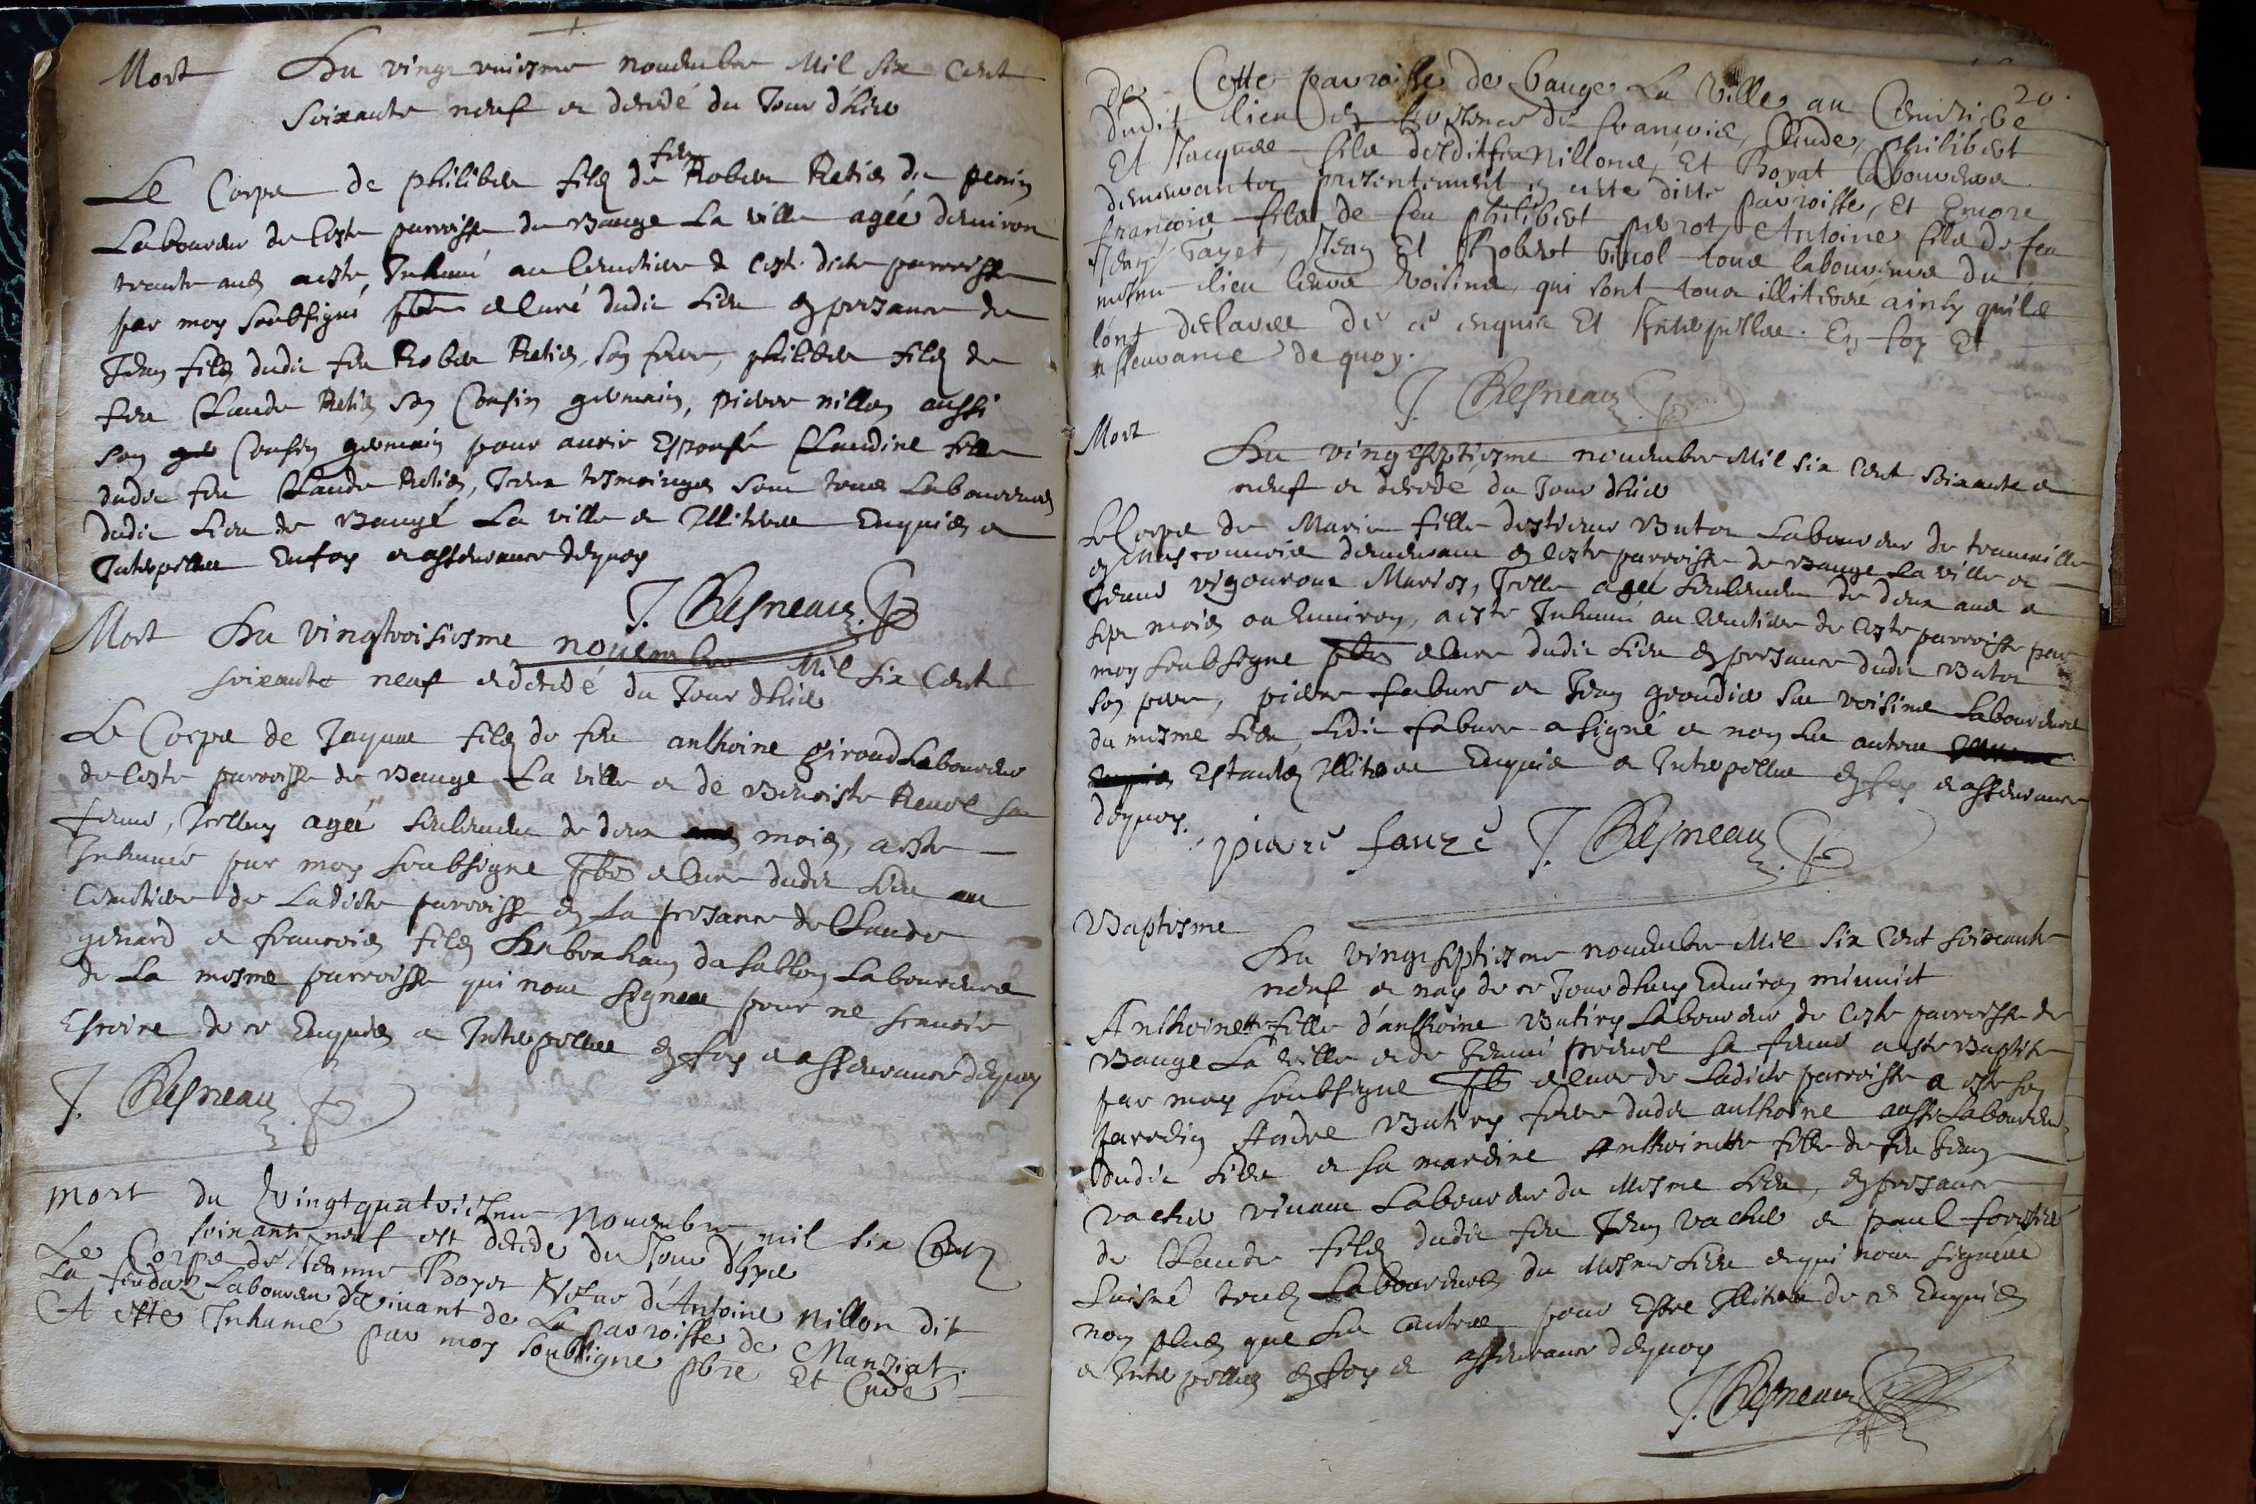 Mort Du vingt uniesme nouembre Mil six Cent
soixante neuf et decedé du Jour d'hier
Le Corps de philiber filz de feu Rober Retis du perin
Laboureur de Ceste parroisse de Baugé La ville agée denuiron
trante ans a esté Inhumé au Cemetiere de Ceste dicte parroisse
par moy Soubsigné pbre et Curé dudit Lieu en presance de
Jean filz dudit feu Rober Retis, son frere, philiber filz de
feu Claude Retis son Cousin germain, pierre nillon aussi
son Cousin germain pour auoir Espousé Claudine fille
dudit feu Claude Retis, Iceux tesmoings sont tous Laboureurs
dudit Lieu de Baugé La ville et Illiteres Enquis et
Interpelles En foy et asseurance dequoy
J. Chesneau
Mort Du Vingtroisiesme nouembre Mil six Cent
soixante neuf et decedé du Jour d'hier
Le Corps de Jaques filz de feu anthoine giroud Laboureur
de Ceste parroisse de Bauge La ville et de Benoiste Reuol sa
feme, Icelluy agée seulement de deux mois, a esté
Inhumé par moy Soubsigne pbre et Curé dudit Lieu au
Cemetiere de Ladicte parroisse en La presance de Claude
genard et francois filz Habraham dasablon Laboureurs
de La mesme parroisse qui nont signes pour ne scauoir
Escrire de ce Enquis et Interpelles en foy et asseurance dequoy
J. Chesneau
mort du Vingtquatriesme Nouembre mil six Cent
soixante neuf est decede du Jour d'hyer
Le Corps de Jeanne Boyer Vefue d'Antoine nillon dit
La feuda Laboureur viuant de La parroisse de Manziat.
A esté Inhumé par moy soubsigné pbre Et Curé
20.
de Cette parroisse de bauge La Ville, au Cemitiere
dudit lieu en presence de francois, Claude, philibert
Et Jacques fils desdits feu Nillons, Et Boyat Laboureurs
demeurants presentement en cette ditte parroisse, Et Encore
francois fils de feu philibert perrot, Antoine fils de feu
Jean Tayet, Jean Et Robert binol tous laboureurs du
mesme lieu leurs Voisins, qui sont tous illiterés ainsy quils
lont declarés de ce enquis Et Interpelles. En foy Et
asseurance de quoy.
J. Chesneau
Mort
Du vingtseptiesme nouembre Mil six Cent soixante et
neuf et decedé du Jour d'hier
Le Corps de Marie fille destienne Butor Laboureur de
en Masconnois demeurant en Ceste parroisse de Bauge La ville et
Jeane vigouroux Maries, Icelle agée seulement de deux ans et
sept mois ou Enuiron, a esté Inhumé au Cemetiere de Ceste parroisse par
moy soubsigne pbre et Cure dudit Lieu en presance dudit Butor
son pere, pierre fabure et Jean grondie ses voisins Laboureurs
du mesme Lieu, Ledit fabure a signé et non les autres
Estants Illiteres Enquis et Interpelles en foy et asseurance
dequoy.
pierre faure J. Chesneau
Baptesme
Du vingt septiesme nouembre Mil six Cent soixante
neuf et nay de ce Jourdhuy Enuiron minuict
Anthoinette fille d'anthoine Butiry Laboureur de Ceste parroisse de
Bauge La ville et de Jeane preuel sa feme a esté Baptisée
par moy soubsigne pbre et Cure de Ladicte parroisse a esté son
parrein Andre Butiry frere dudit anthoine aussi Laboureur
dudit Lieu et sa mareine Anthoinette fille de feu Jean
vacher viuant Laboureur du Mesme Lieu, en presance
de Claude filz dudit feu Jean vacher et paul forestier
Cuisné touts Laboureurs du Mesme Lieu et qui nont signés
non plus que les autres pour Estre Illiteres de ce Enquis
et Interpelles en foy et asseurance dequoy
J. Chesneau